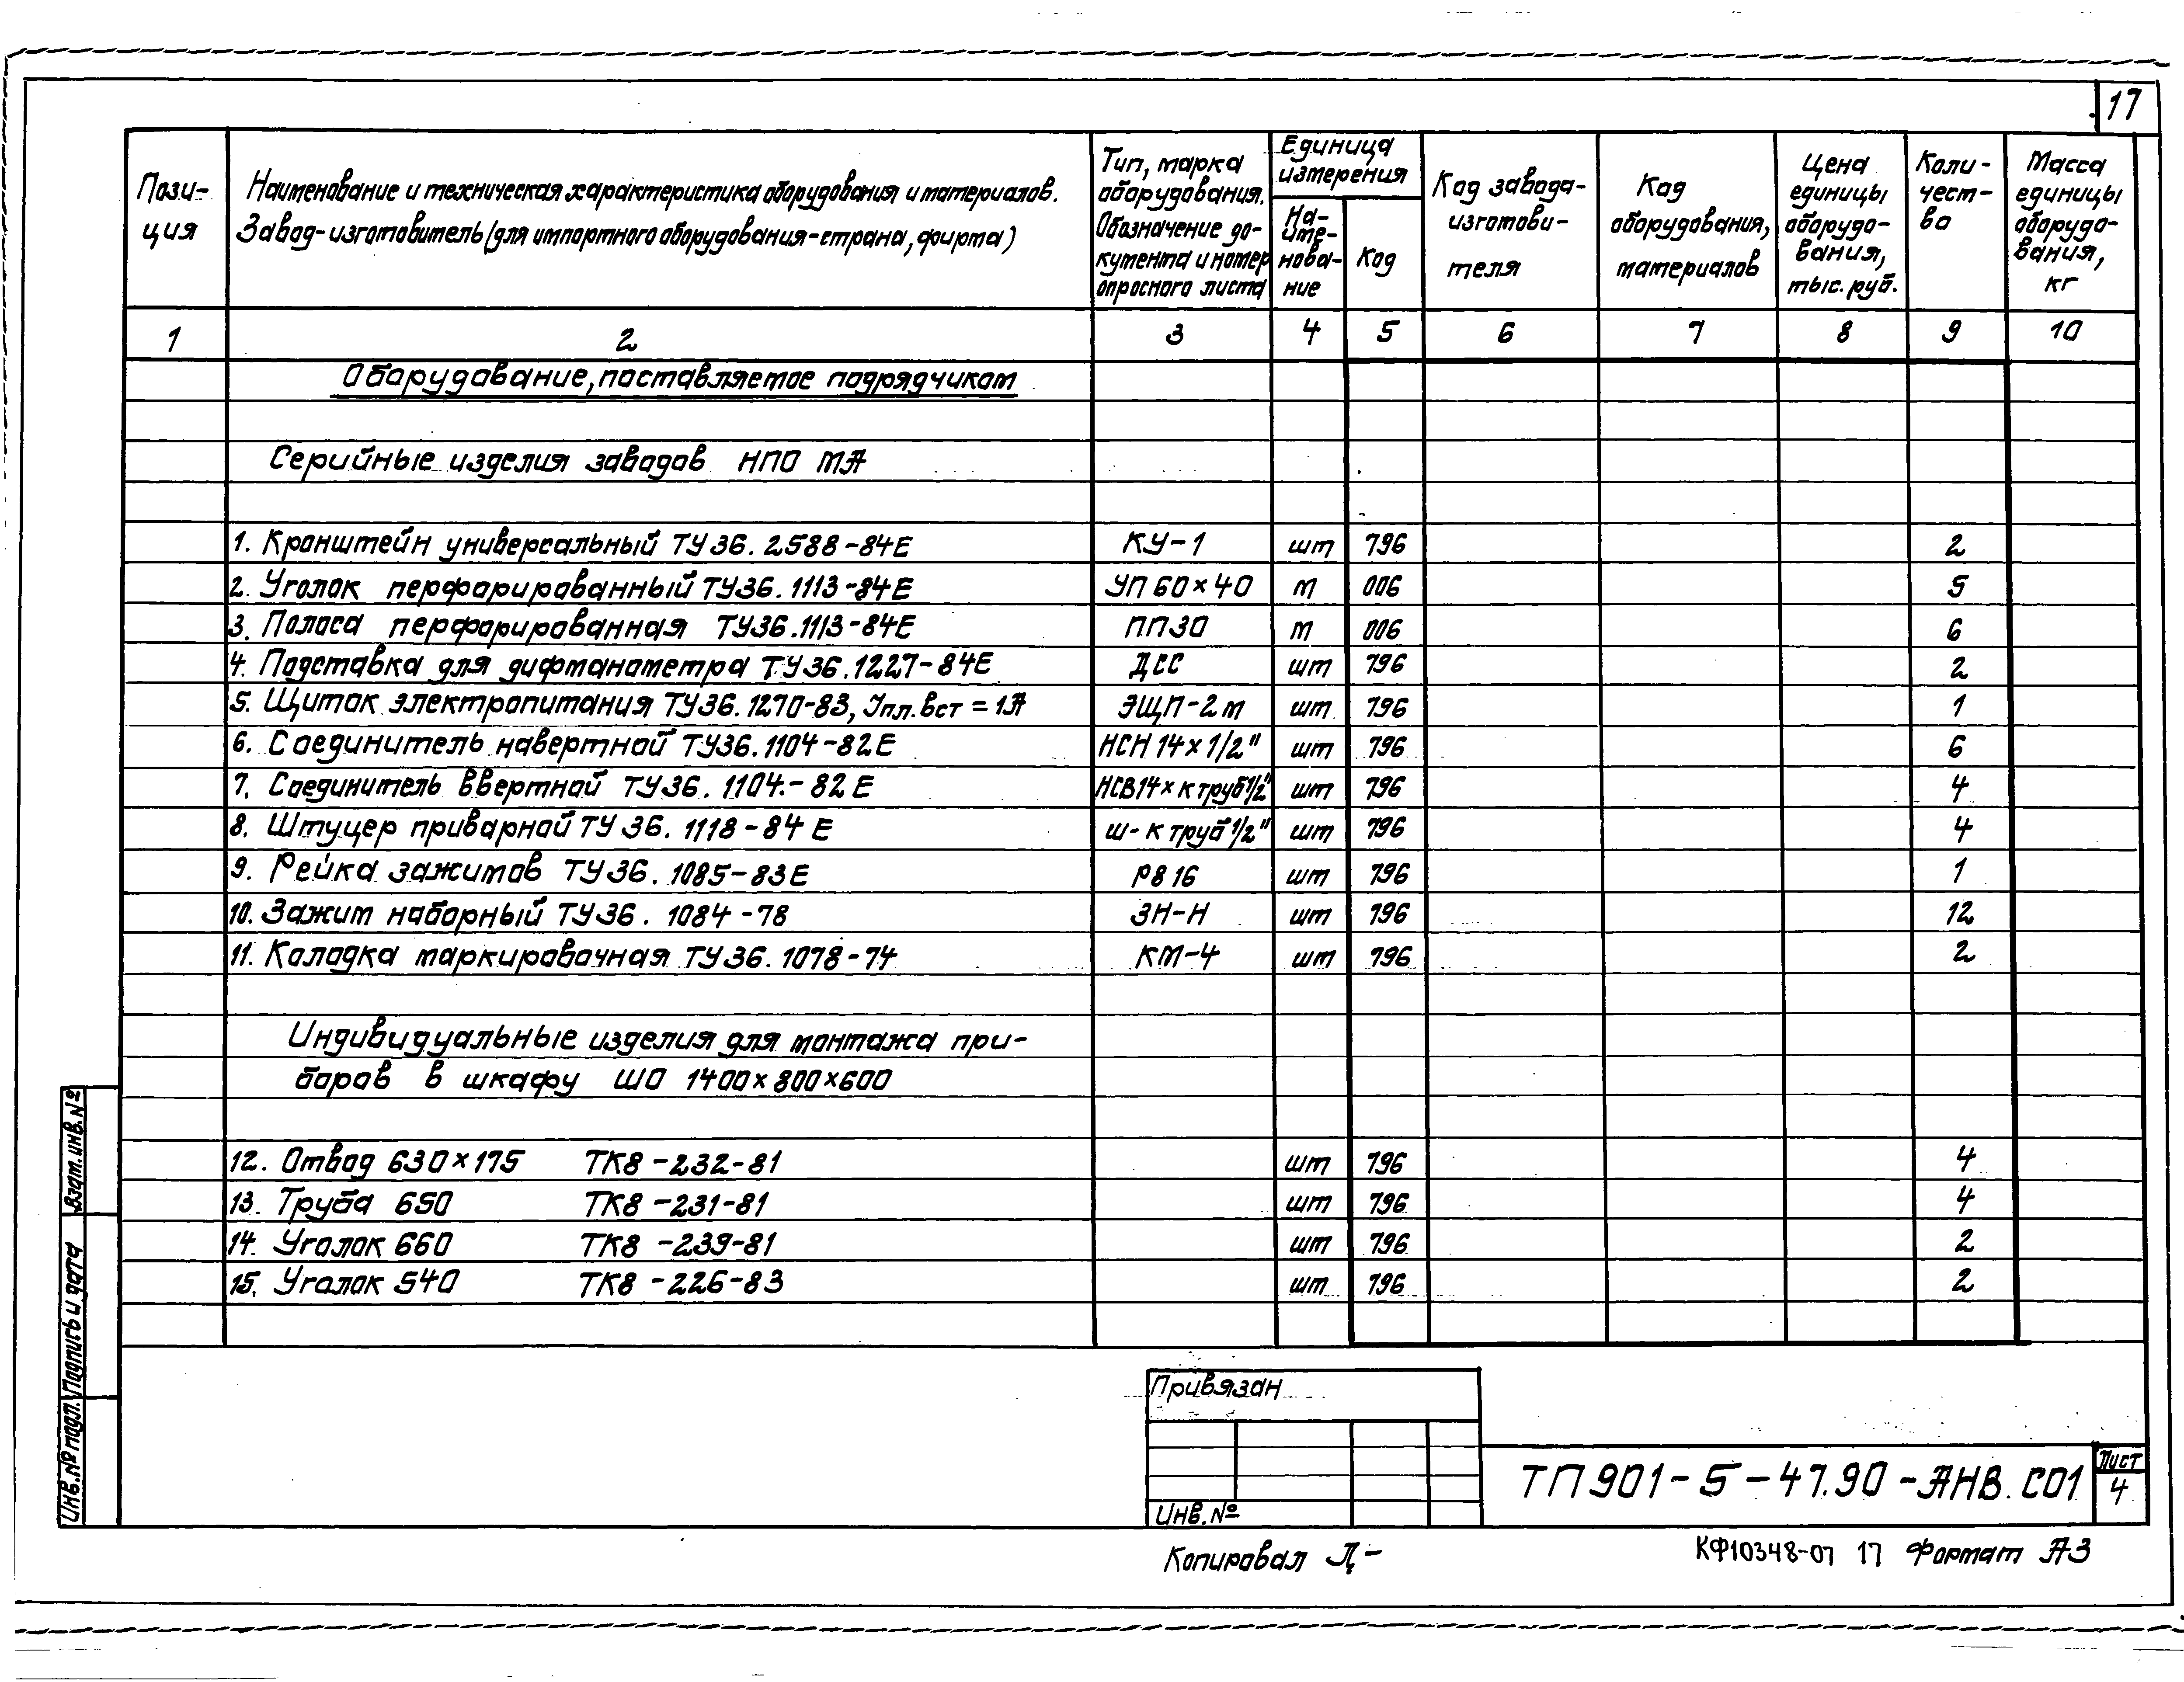 17
Пози-
ция
Наименование и техническая характеристика оборудования и материалов.
Завод-изготовитель (для импортного оборудования-страна, фирма)
Тип, марка
оборудования.
Обозначение до-
кумента и номер
опросного листа
Единица
измерения
На-
име-
нова-
ние
Код
Код завода-
изготови-
теля
Код
оборудования,
материалов
Цена
единицы
оборудо-
вания,
тыс. руб.
Коли-
чест-
во
Масса
единицы
оборудо-
вания,
кг
1 2 3 4 5 6 7 8 9 10
Оборудование, поставляемое подрядчиком
Серийные изделия заводов НПО МА
1. Кронштейн универсальный ТУ 36. 2588-84Е КУ-1 шт 796 2
2. Уголок перфорированный ТУ36.1113-84Е УП 60×40 м 006 5
3. Полоса перфорированная ТУ36.1113-84Е ПП30 м 006 6
4. Подставка для дифманометра ТУ36.1227-84Е ДСС шт 796 2
5. Щиток электропитания ТУ36.1270-83, Iпл.вст = 1А ЭЩП-2м шт 796 1
6. Соединитель навертной ТУ36.1104-82Е НСН 14×1/2" шт 796 6
7. Соединитель ввертной ТУ36.1104.-82Е НСВ14×к труб1/2" шт 796 4
8. Штуцер приварной ТУ 36. 1118-84 Е ш-к труб 1/2" шт 796 4
9. Рейка зажимов ТУ36. 1085-83Е Р816 шт 796 1
10. Зажим наборный ТУ36. 1084-78 ЗН-Н шт 796 12
11. Колодка маркировочная ТУ36. 1078-74 КМ-4 шт 796 2
Индивидуальные изделия для монтажа при-
боров в шкафу ШО 1400×800×600
12. Отвод 630×175 ТК8-232-81 шт 796 4
13. Труба 650 ТК8-231-81 шт 796 4
14. Уголок 660 ТК8-239-81 шт 796 2
15. Уголок 540 ТК8-226-83 шт 796 2
Взам. инв. №
Подпись и дата
Инв. № подл.
Привязан
Инв. №
ТП 901-5-47.90-АНВ.СО1
Лист
4
Копировал
КФ10348-07 17 Формат А3